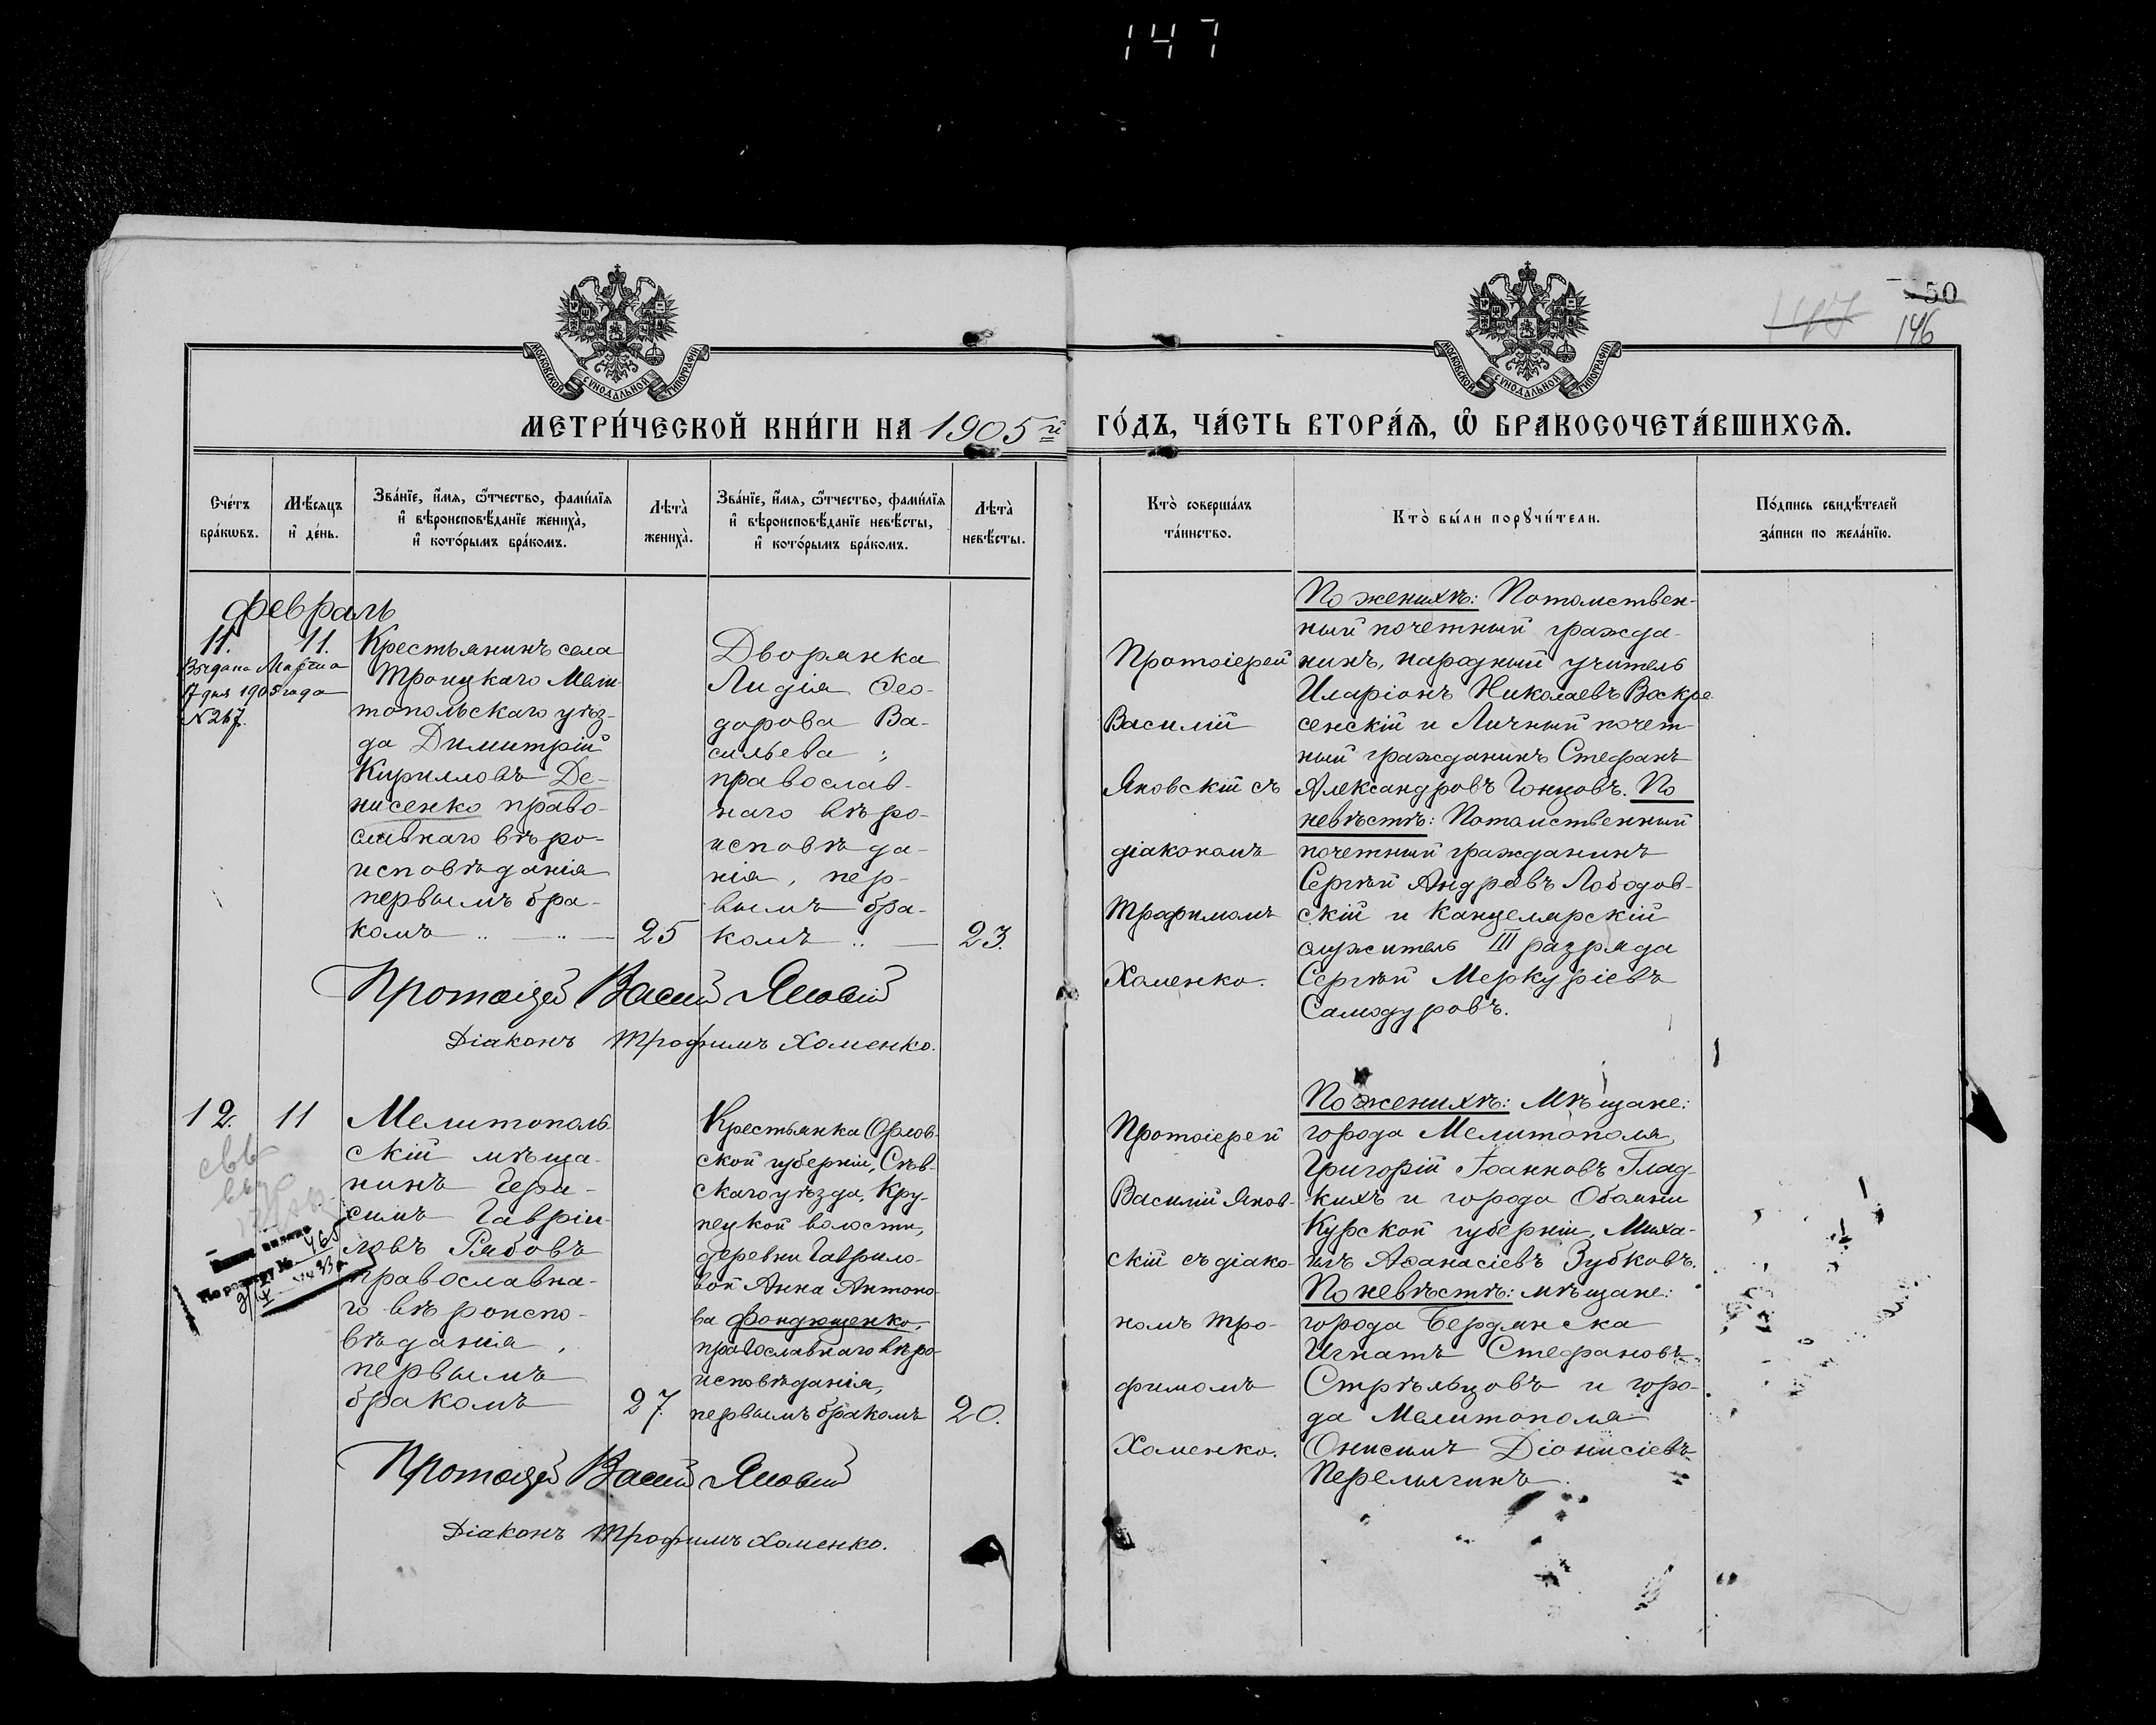 147
50
146
МОСКОВСКОЙ СѴНОДАЛЬНОЙ ТИПОГРАФІИ
МОСКОВСКОЙ СѴНОДАЛЬНОЙ ТИПОГРАФІИ
МЕТРИ́ЧЕСКОЙ КНИ́ГИ НА 1905й ГО́ДЪ, ЧА́СТЬ ВТОРА́Ѧ, Ѡ҆ БРАКОСОЧЕТА́ВШИХСѦ.
Сче́тъ
бра́кѡвъ.
Мѣ́сяцъ
и҆ де́нь.
Зва́нїе, и҆́мя, ѻ҆́тчество, фами́лїя
и҆ вѣроисповѣ́данїе жениха̀,
и҆ кото́рымъ бра́комъ.
Лѣта̀
жениха̀.
Зва́нїе, и҆́мя, ѻ҆́тчество, фами́лїя
и҆ вѣроисповѣ́данїе невѣ́сты,
и҆ кото́рымъ бра́комъ.
Лѣта̀
невѣ́сты.
Кто̀ соверша́лъ
та́инство.
Кто̀ бы́ли порꙋчи́тели.
По́дпись свидѣ́телей
за́писи по жела́нїю.
Февраль
11. 11.
Выдана Марта
17 дня 1905 года
№ 267.
Крестьянинъ села
Троицкаго Мели-
топольскаго уѣз-
да Димитрій
Кирилловъ Де-
нисенко право-
славнаго вѣро-
исповѣданія
первымъ бра-
комъ
25
Дворянка
Лидія Ѳео-
дорова Ва-
сильева ;
православ-
наго вѣро-
исповѣда-
нія, пер-
вымъ бра-
комъ
23.
Протоіерей
Василій
Яновскій съ
діакономъ
Трофимомъ
Хоменко.
По женихѣ: Потомствен-
ный почетный гражда-
нинъ, народный учитель
Иларіонъ Николаевъ Воскре
сенскій и Личный почет-
ный гражданинъ Стефанъ
Александровъ Гонцовъ. По
невѣстѣ: Потомственный
почетный гражданинъ
Сергѣй Андреевъ Лободов-
скій и Канцелярскій
служитель III разряда
Сергѣй Меркуріевъ
Самодуровъ.
Протоіерей Василій Яновскій
Діаконъ Трофимъ Хоменко.
12. 11
По реестру № 465
Мелитополь
скій мѣща-
нинъ Гера-
симъ Гавріи-
ловъ Рябовъ
православна-
го вѣроиспо-
вѣданія,
первымъ
бракомъ
27.
Крестьянка Орлов-
ской губерніи, Сѣв-
скаго уѣзда, Кру-
пецкой волости,
деревни Гаврило-
вой Анна Антоно-
ва Фондющенко,
православнаго вѣро-
исповѣданія,
первымъ бракомъ
20.
Протоіерей
Василій Янов-
скій съ діако-
номъ Тро-
фимомъ
Хоменко.
По женихѣ: Мѣщане:
города Мелитополя,
Григорій Іоанновъ Глад-
кихъ и города Обояни
Курской губерніи, Миха-
илъ Аѳанасіевъ Зубковъ.
По невѣстѣ: мѣщане:
города Бердянска
Игнатъ Стефановъ
Стрѣльцовъ и горо-
да Мелитополя
Онисимъ Діонисіевъ
Перелыгинъ.
Протоіерей Василій Яновскій
Діаконъ Трофимъ Хоменко.